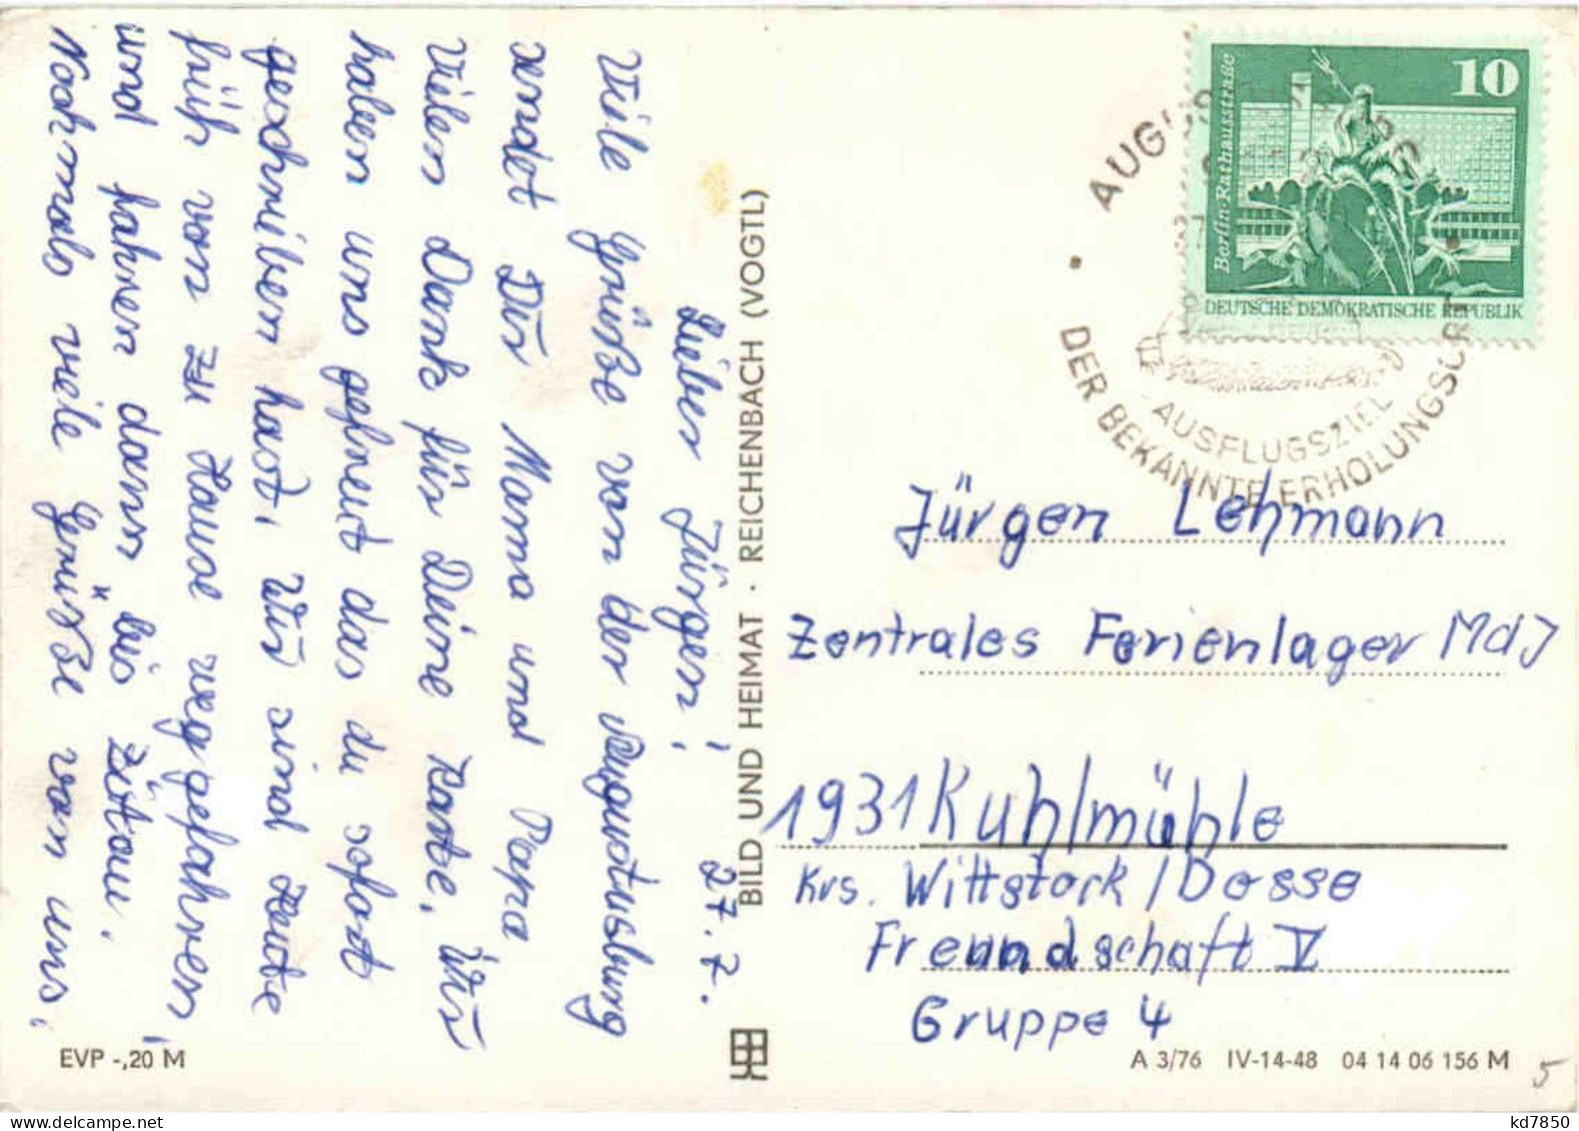 27.7.
Lieber Jürgen!
Viele Grüße von der Augustusburg
sendet Dir Mama und Papa
Vielen Dank für Deine Karte. Wir
haben uns gefreut das du sofort
geschrieben hast. Wir sind Heute
früh von zu Hause weggefahren,
und fahren dann bis Zittau.
Nochmals viele Grüße von uns.
EVP -,20 M
BILD UND HEIMAT · REICHENBACH (VOGTL)
10
Berlin-Rathausstraße
DEUTSCHE DEMOKRATISCHE REPUBLIK
AUSFLUGSZIEL
DER BEKANNTE ERHOLUNGSORT
Jürgen Lehmann
Zentrales Ferienlager MdJ
1931 Kuhlmühle
Krs. Wittstock/Dosse
Freundschaft V
Gruppe 4
A 3/76 IV-14-48 04 14 06 156 M
5
kd7850